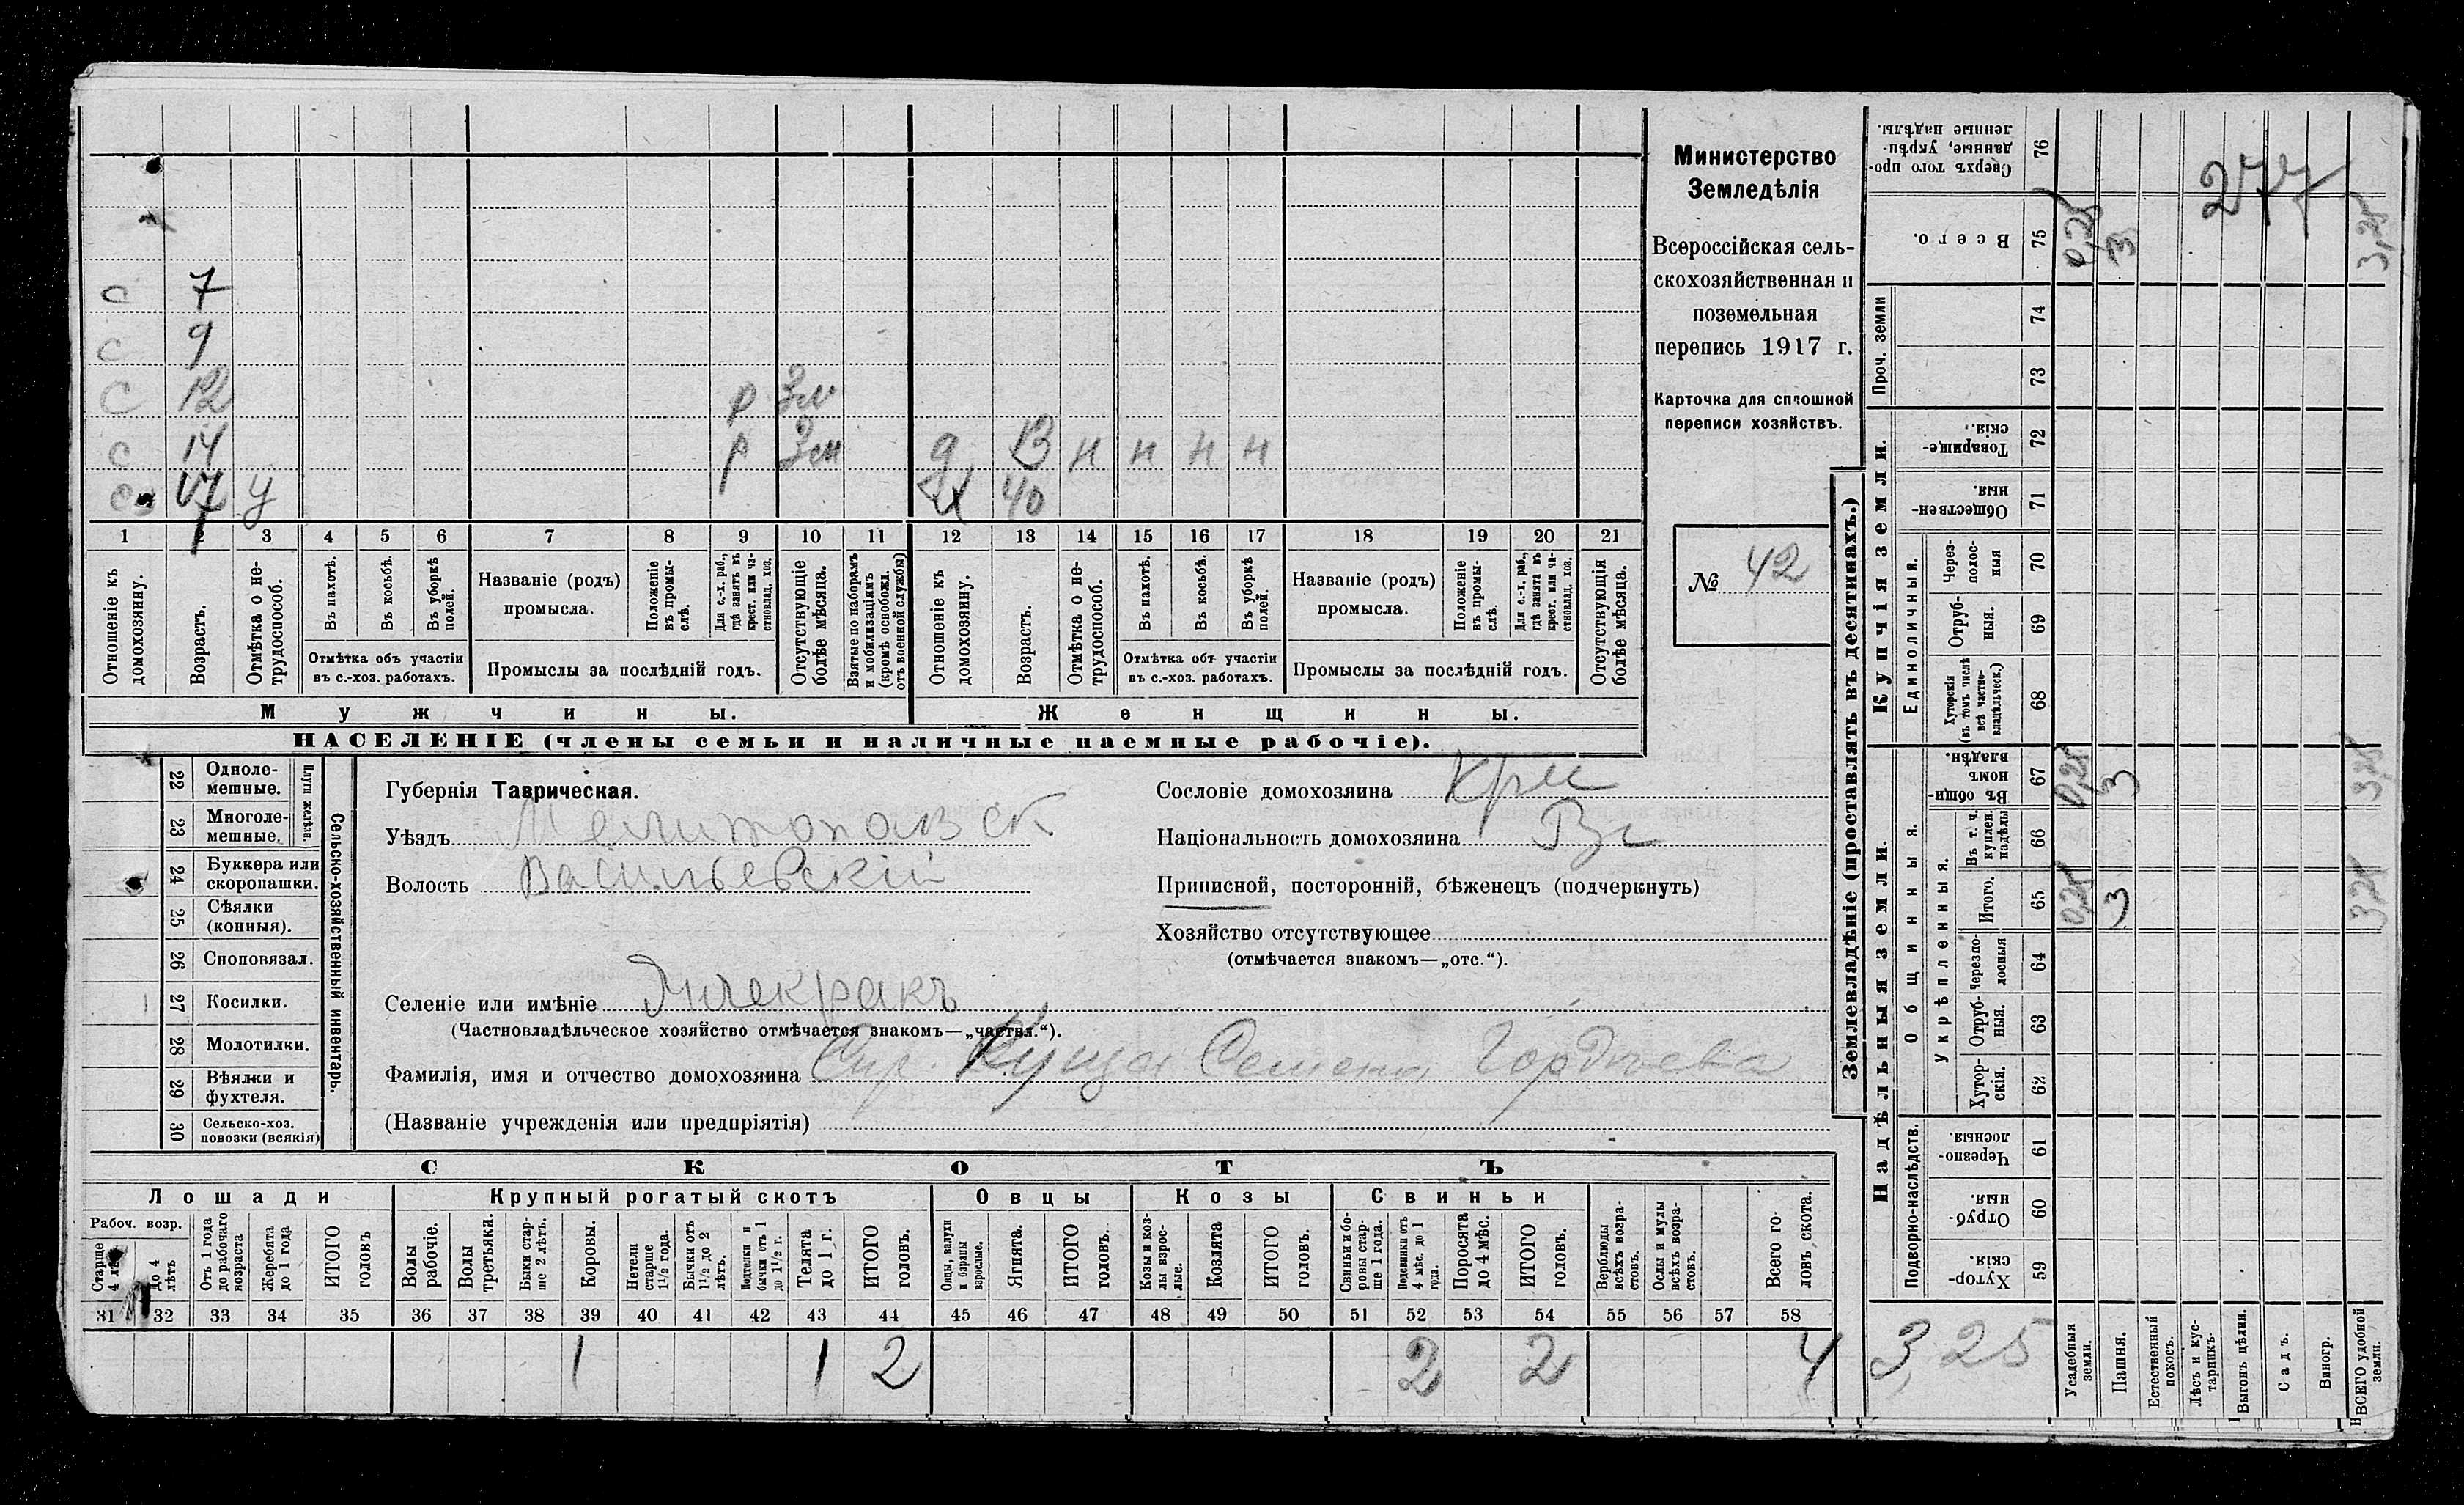 Министерство
Земледѣлія
Всероссійская сель-
скохозяйственная и
поземельная
перепись 1917 г.
Карточка для сплошной
переписи хозяйствъ.
№ 42
с 7
с 9
с 12 р 3м
с 14 р 3м д 13 н н н н
17 у х 40
1 2 3 4 5 6 7 8 9 10 11 12 13 14 15 16 17 18 19 20 21
Отношеніе къ домохозяину.
Возрастъ.
Отмѣтка о не-трудоспособ.
Въ пахотѣ.
Въ косьбѣ.
Въ уборкѣ полей.
Отмѣтка объ участіи
въ с.-хоз. работахъ.
Названіе (родъ)
промысла.
Положеніе въ промы-слѣ.
Для с.-х. раб., гдѣ занятъ въ крест. или ча-стновлад. хоз.
Промыслы за послѣдній годъ.
Отсутствующіе болѣе мѣсяца.
Взятые по наборамъ и мобилизаціямъ (кромѣ освобожд. отъ военной службы)
Отношеніе къ домохозяину.
Возрастъ.
Отмѣтка о не-трудоспособ.
Въ пахотѣ.
Въ косьбѣ.
Въ уборкѣ полей.
Отмѣтка объ участіи
въ с.-хоз. работахъ.
Названіе (родъ)
промысла.
Положеніе въ промы-слѣ.
Для с.-х. раб., гдѣ занята въ крест. или ча-стновлад. хоз.
Промыслы за послѣдній годъ.
Отсутствующія болѣе мѣсяца.
Мужчины.
Женщины.
НАСЕЛЕНІЕ (члены семьи и наличные наемные рабочіе).
22 Одноле-мешные.
23 Многоле-мешные.
Плуги желѣзн.
24 Буккера или скоропашки.
25 Сѣялки (конныя).
26 Сноповязал.
27 Косилки.
28 Молотилки.
29 Вѣялки и фухтеля.
30 Сельско-хоз. повозки (всякія)
Сельско-хозяйственный инвентарь.
Губернія Таврическая.
Уѣздъ Мелитопольск
Волость Васильевскій
Селеніе или имѣніе
(Частновладѣльческое хозяйство отмѣчается знакомъ—„частвл.“).
Фамилія, имя и отчество домохозяина Куща Семена Гордѣева
(Названіе учрежденія или предпріятія)
Сословіе домохозяина Кре
Національность домохозяина
Приписной, посторонній, бѣженецъ (подчеркнуть)
Хозяйство отсутствующее
(отмѣчается знакомъ—„отс.“).
СКОТЪ
Лошади
Крупный рогатый скотъ
Овцы
Козы
Свиньи
Рабоч. возр.
Старше 4 лѣтъ
до 4 лѣтъ
Отъ 1 года до рабочаго возраста
Жеребята до 1 года
ИТОГО головъ
Волы рабочіе.
Волы третьяки.
Быки стар-ше 2 лѣтъ.
Коровы.
Нетели старше 1½ года.
Бычки отъ 1½ до 2 лѣтъ.
Подтелки и бычки отъ 1 до 1½ г.
Телята до 1 г.
ИТОГО головъ.
Овцы, валухи и бараны взрослые.
Ягнята.
ИТОГО головъ.
Козы и коз-лы взрос-лые.
Козлята
ИТОГО головъ.
Свиньи и бо-ровы стар-ше 1 года.
Подсвинки отъ 4 мѣс. до 1 года.
Поросята до 4 мѣс.
ИТОГО головъ.
Верблюды всѣхъ возра-стовъ.
Ослы и мулы всѣхъ возра-стовъ.
Всего го-ловъ скота.
31 32 33 34 35 36 37 38 39 40 41 42 43 44 45 46 47 48 49 50 51 52 53 54 55 56 57 58
1 1 2 2 2 4
Землевладѣніе (проставлять въ десятинахъ.)
Надѣльныя земли.
Купчія земли.
Проч. земли
Подворно-наслѣдств.
Общинныя.
Укрѣпленныя.
Единоличныя.
Хутор-скія. 59
Отруб-ныя. 60
Черезпо-лосныя 61
Хутор-скія. 62
Отруб-ныя. 63
Черезпо-лосныя 64
Итого. 65 0,25 3 3,25
Въ т. ч. куплен. надѣлы 66
Въ общин-номъ владѣн. 67 0,25 3 3,25
Хуторскія (въ томъ числѣ всѣ частно-владѣльческ.) 68
Отруб-ныя. 69
Через-полос-ныя 70
Обществен-ныя. 71
Товарище-скія. 72
73
74
Всего. 75 0,25 3 3,25
Сверхъ того про-данные, укрѣп-ленные надѣлы. 76
277
3,25
Усадебныя земли.
Пашня.
Естественный покосъ.
Лѣсъ и кус-тарникъ.
Выгонъ цѣлин.
Садъ.
Виногр.
ВСЕГО удобной земли.